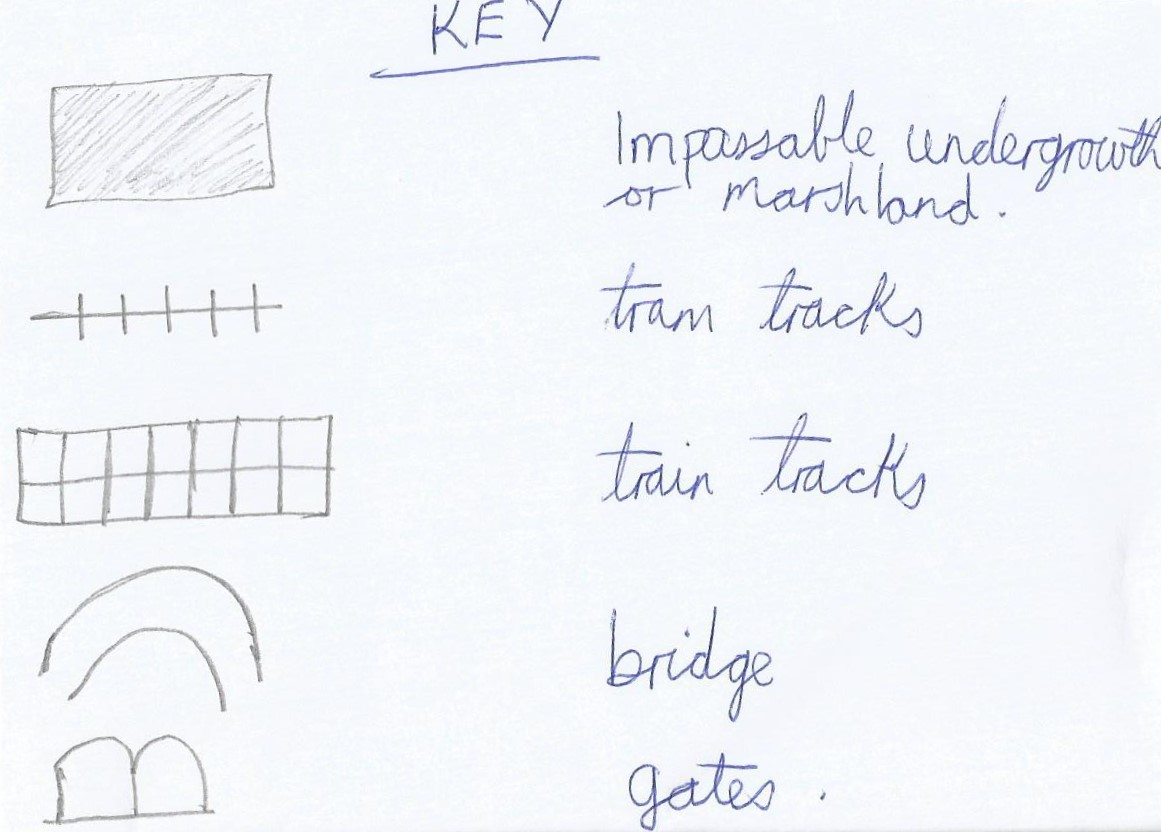 KEY
Impassable undergrowth
or marshland.
tram tracks
train tracks
bridge
gates.